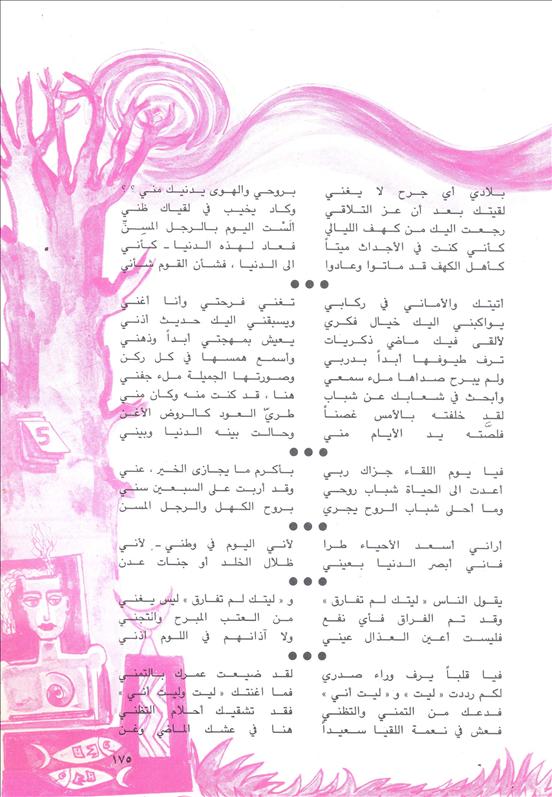 بلادي أي جرح لا يغني بروحي والهوى يدنيك مني ؟ ؟
لقيتك بعد أن عز التلاقي وكاد يخيب في لقياك ظني
رجعت اليك من كهف الليالي ألست اليوم بالرجل المسنّ
كأني كنت في الأجداث ميتاً فعاد لهذه الدنيا ـ كأني
كأهل الكهف قد ماتوا وعادوا الى الدنيا ، فشأن القوم شأني
●●●
أتيتك والأماني في ركابي تغني فرحتي وأنا أغني
يواكبني اليك خيال فكري ويسبقني اليك حديث أذني
لألقى فيك ماضي ذكريات يعيش بمهجتي أبداً وذهني
ترف طيوفها أبداً بدربي وأسمع همسها في كل ركن
ولم يبرح صداها ملء سمعي وصورتها الجميلة ملء جفني
وأبحث في شعابك عن شباب هنا ، قد كنت منه وكان مني
لقد خلفته بالأمس غصناً طريّ العود كالروض الأغن
فلصّته يد الأيام مني وحالت بينه الدنيا وبيني
●●●
فيا يوم اللقاء جزاك ربي بأكرم ما يجازى الخير ، عني
أعدت الى الحياة شباب روحي وقد أربت على السبعين سني
وما أحلى شباب الروح يجري بروح الكهل والرجل المسن
●●●
أراني أسعد الأحياء طرا لأني اليوم في وطني ـ لأني
فاني أبصر الدنيا بعيني ظلال الخلد أو جنات عدن
●●●
يقول الناس « ليتك لم تفارق » و « ليتك لم تفارق » ليس يغني
وقد تم الفراق فأي نفع من العتب المبرح والتجني
فليست أعين العذال عيني ولا آذانهم في اللوم أذني
●●●
فيا قلباً يرف وراء صدري لقد ضيعت عمرك بالتمني
لكم رددت « ليت » و « ليت أني » فما أغنتك « ليت وليت أني »
فدعك من التمني والتظني فقد تشقيك أحلام التظني
فعش في نعمة اللقيا سعيداً هنا في عشك الماضي وغن
١٧٥
5